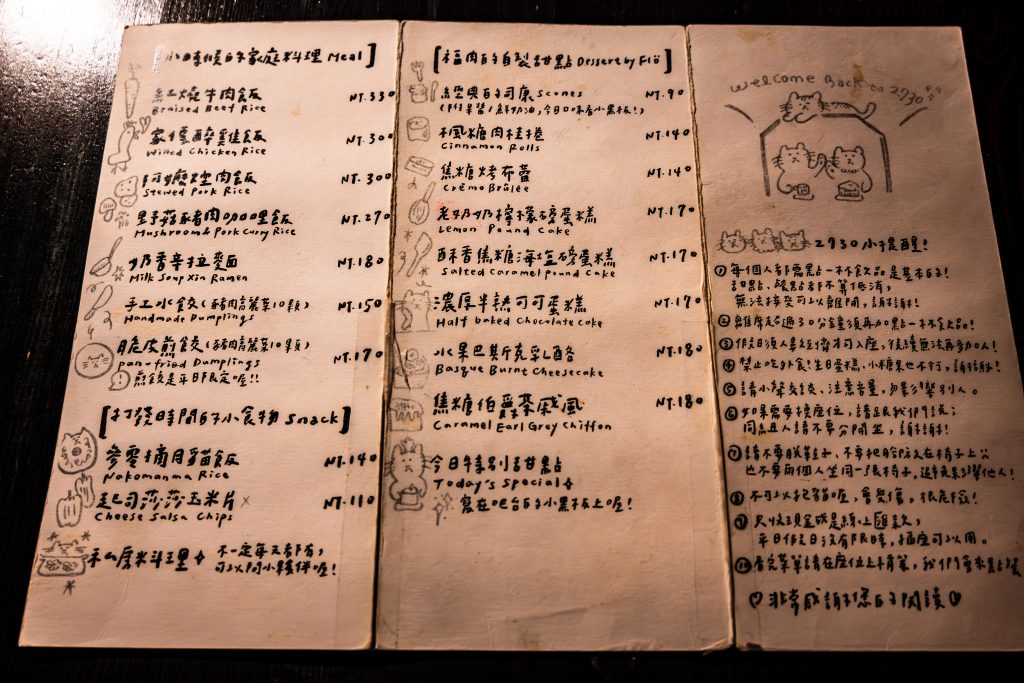 [小時候的家庭料理 Meal]
紅燒牛肉飯 NT.330
Braised Beef Rice
家傳醉雞飯 NT.300
Willed Chicken Rice
阿嬤焢肉飯 NT.300
Stewed Pork Rice
野菇豬肉咖哩飯 NT.270
Mushroom & Pork Curry Rice
奶香辛拉麵 NT.180
Milk Soup Xin Ramen
手工水餃(豬肉高麗菜10顆) NT.150
Handmade Dumplings
脆皮煎餃(豬肉高麗菜10顆) NT.170
pan-fried Dumplings
煎餃是平日限定喔!!
[打發時間的小食物 Snack]
麥零摘月貓飯 NT.140
Nakomanma Rice
起司莎莎玉米片 NT.110
Cheese Salsa Chips
私房料理 不一定每天都有,
可以問小夥伴喔!
[福肉的自製甜點 Dessert by Flö]
經典的司康 Scones NT.90
(附果醬/鮮奶油,今日口味看小黑板!)
楓糖肉桂捲 NT.140
Cinnamon Rolls
焦糖烤布蕾 NT.140
Créme Brûlée
老奶奶檸檬磅蛋糕 NT.170
Lemon Pound Cake
酥香焦糖海塩磅蛋糕 NT.170
Salted Caramel Pound Cake
濃厚半熟可可蛋糕 NT.170
Half baked Chocolate Cake
水果巴斯克乳酪 NT.180
Basque Burnt Cheesecake
焦糖伯爵茶戚風 NT.180
Caramel Earl Grey Chiffon
今日特別甜點
Today's Special
寫在吧台的小黑板上喔!
Welcome Back to 2730
2730小提醒!
①每個人都需點一杯飲品是基本的!
甜點、餐點都不算低消,
無法接受可以離開,謝謝!
②離席超過30分鐘須再加點一杯飲品!
③假日須人員到齊才可入座,後續無法再加人!
④禁止吃外食!生日蛋糕、小糖果也不行,謝謝!
⑤請小聲交談、注意音量,勿影響別人。
⑥如果需要換座位,請跟我們說;
同組人請不要分開坐,謝謝!
⑦請不要脫鞋子、不要把腳放在椅子上
也不要兩個人坐同一張椅子,避免影響他人!
⑧不可以抱貓喔,會受傷,很危險!
⑨只收現金或是線上匯款,
平日假日沒有限時,插座可以用。
⑩看完菜單請在座位上稍等,我們會來點餐
♡非常感謝您的閱讀♡